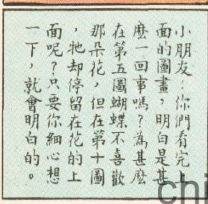 小朋友，你們看完上
面的圖畫，明白是甚
麼一回事嗎？為甚麼
在第五圖蝴蝶不喜歡
那朵花，但在第十圖
，牠却停留在花的上
面呢？只要你細心想
一下，就會明白的。
chi